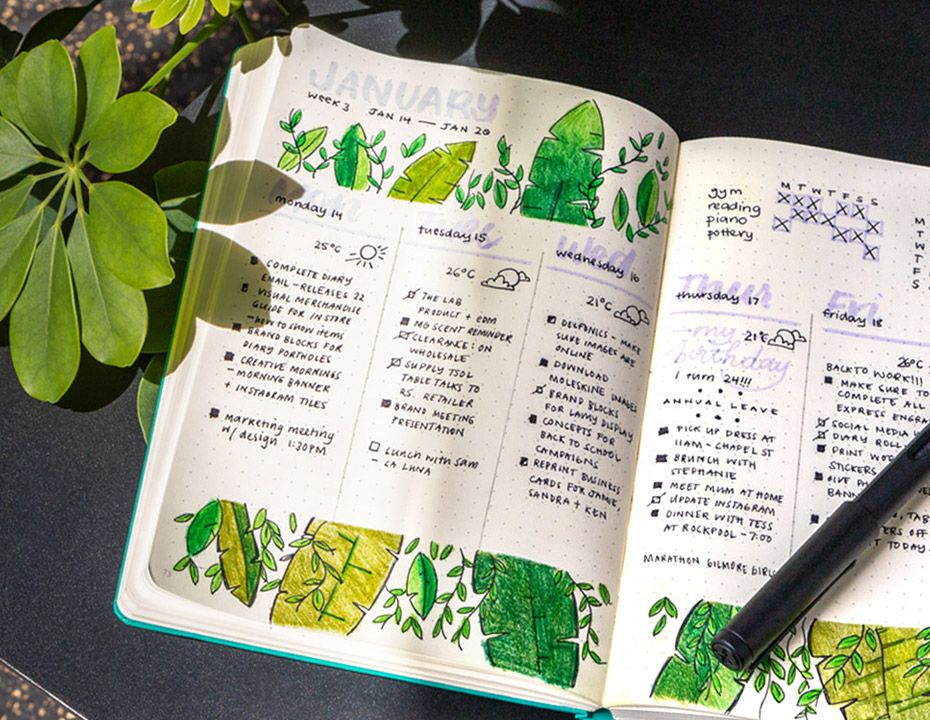 JANUARY
week 3 JAN 14 — JAN 20
Mon
monday 14
25°C
COMPLETE DIARY
EMAIL - RELEASES 22
VISUAL MERCHANDISE
GUIDE FOR INSTRE
- how to show items
BRAND BLOCKS FOR
DIARY PORTHOLES
CREATIVE MORNINGS
- MORNING BANNER
+ INSTAGRAM TILES
Marketing meeting
w/ design 1:30PM
73
Tues
tuesday 15
26°C
THE LAB
PRODUCT + EDM
MG SCENT REMINDER
CLEARANCE: ON
WHOLESALE
SUPPLY TSOL
TABLE TALKS TO
RS. RETAILER
BRAND MEETING
PRESENTATION
Lunch with sam
- LA LUNA
Wed
wednesday 16
21°C
DEFFONICS - MAKE
SURE IMAGES ARE
ONLINE
DOWNLOAD
MOLESKINE IMAGES
BRAND BLOCKS
FOR LAMY DISPLAY
CONCEPTS FOR
BACK TO SCHOOL
CAMPAIGNS
REPRINT BUSINESS
CARDS FOR JAMIE,
SANDRA + KEN
M T W T F S S
gym
reading
piano
pottery
M
T
W
T
F
S
Thur
thursday 17
21°C
- my
birthday
I turn 24!!!
ANNUAL LEAVE
PICK UP DRESS AT
11AM - CHAPEL ST
BRUNCH WITH
STEPHANIE
MEET MUM AT HOME
UPDATE INSTAGRAM
DINNER WITH TESS
AT ROCKPOOL - 7:00
MARATHON GILMORE GIRLS
Fri
friday 18
26°C
BACK TO WORK!!!
MAKE SURE TO
COMPLETE ALL
EXPRESS ENGRA
SOCIAL MEDIA
DIARY ROLL
PRINT WO
STICKERS
GIVE PH
BANN
TAB
ERS OFF
T TODAY